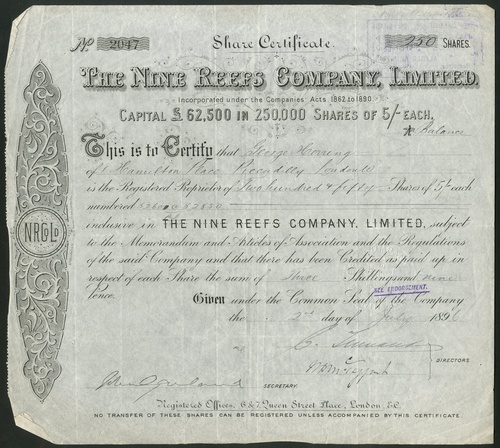 No 2047 Share Certificate 250 SHARES.
THE NINE REEFS COMPANY, LIMITED.
Incorporated under the Companies Acts, 1862 to 1890.
CAPITAL £ 62,500 IN 250,000 SHARES OF 5/- EACH.
Balance
This is to Certify that George Herring
of 1 Hamilton Place Piccadilly London W
is the Registered Proprietor of Two hundred & fifty Shares of 5/- each
numbered
inclusive in THE NINE REEFS COMPANY, LIMITED, subject
to the Memorandum and Articles of Association and the Regulations
of the said Company and that there has been Credited as paid up in
respect of each Share the sum of three Shillings and nine
Pence.
SEE ENDORSEMENT.
Given under the Common Seal of the Company
the 2nd day of July 1896
DIRECTORS
SECRETARY.
Registered Offices, 6 & 7 Queen Street Place, London, E.C.
NO TRANSFER OF THESE SHARES CAN BE REGISTERED UNLESS ACCOMPANIED BY THIS CERTIFICATE.
NRCLD